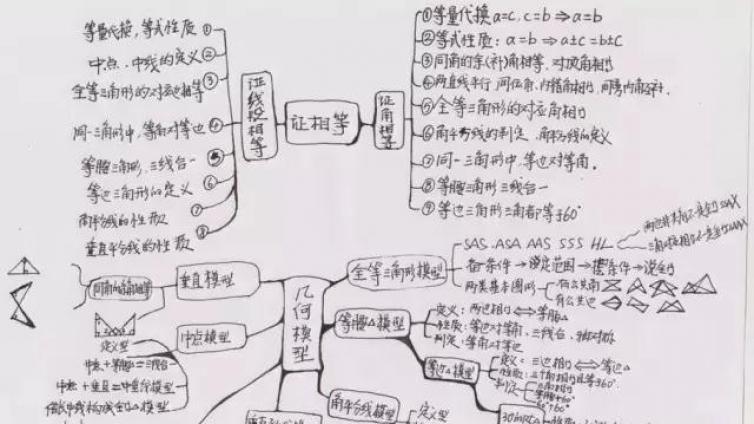 等量代换,等式性质 ①
中点、中线的定义 ②
全等三角形的对应边相等 ③
同一三角形中,等角对等边 ④
等腰三角形,三线合一 ⑤
等边三角形的定义 ⑥
角平分线的性质 ⑦
垂直平分线的性质 ⑧
证线段相等
证相等
证角相等
①等量代换 a=c, c=b ⇒ a=b
②等式性质: a=b ⇒ a±c=b±c
③同角的余(补)角相等、对顶角相等
④两直线平行,同位角、内错角相等,同旁内角互补.
⑤全等三角形的对应角相等
⑥角平分线的判定、角平分线的定义
⑦同一三角形中,等边对等角.
⑧等腰三角形三线合一
⑨等边三角形三角都等于60°
几何模型
全等三角形模型
SAS ASA AAS SSS HL
备条件→说范围→摆条件→说全等
两类基本图形
有公共角
有公共边
等腰△模型
定义:两边相等⇔等腰△
性质:等边对等角、三线合一、轴对称
判定:等角对等边
等边△模型
定义:三边相等⇔等边△
性质:三个角相等且等于60°
判定
角平分线模型
定义型
垂直模型
同角的余角相等
中点模型
定义型
中点+等腰△=三线合一
中点+垂直=中垂线模型
倍长中线构成全等△模型